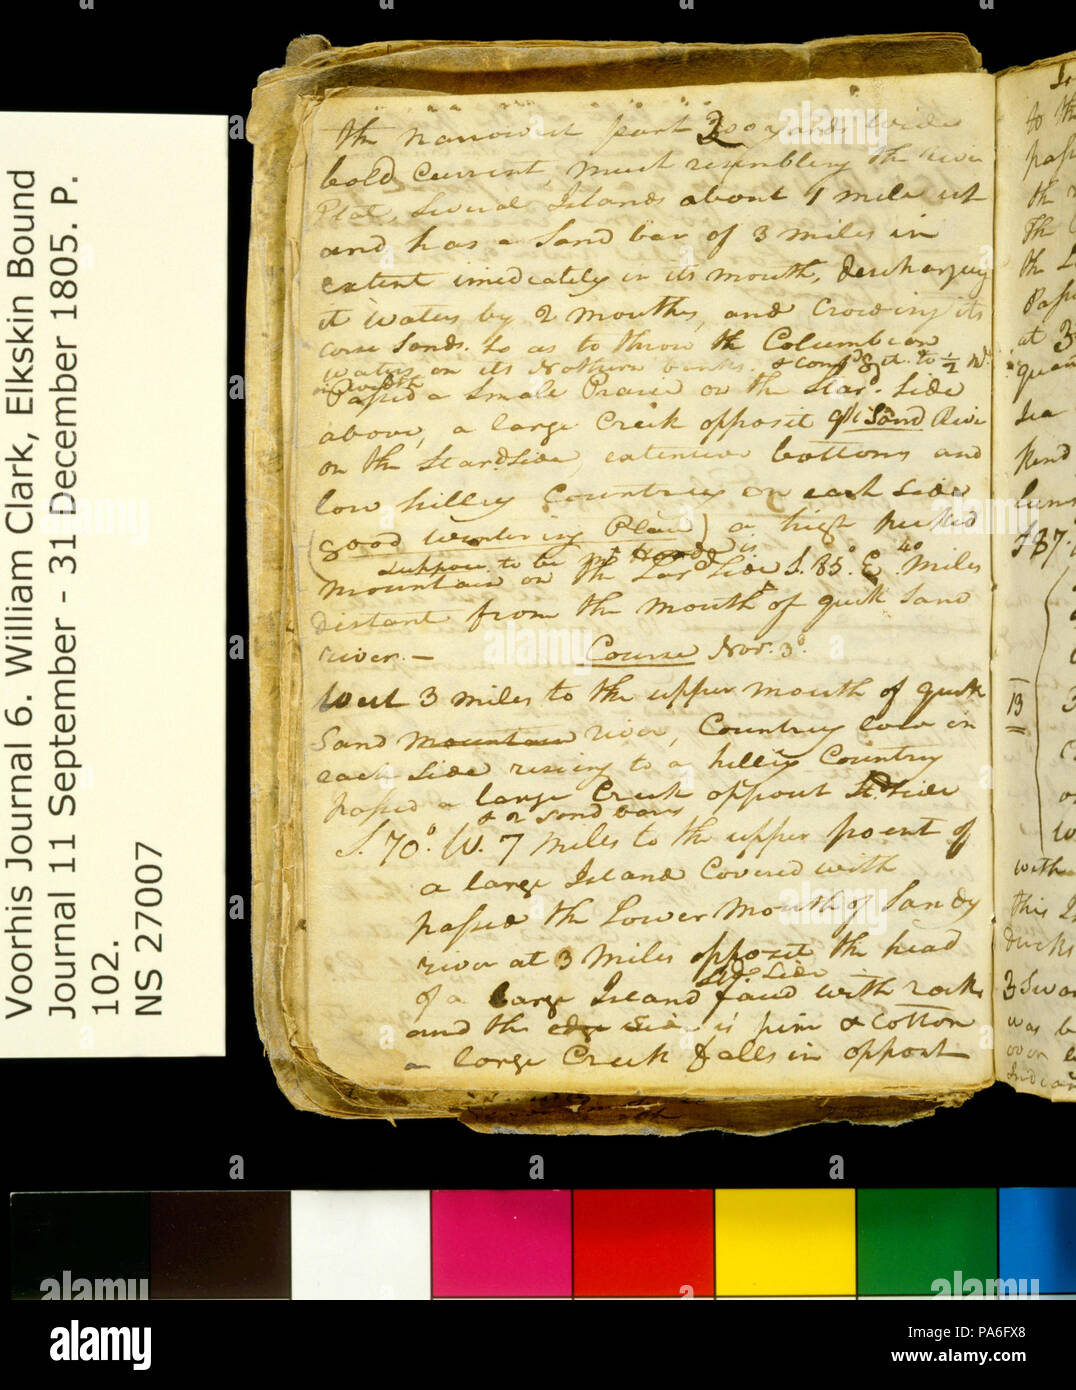 the narrowest part 200 yards wide
bold Current, much resembling the river
Plat, Several Islands about 1 mile up
and has a Sand bar of 3 miles in
extent imediately in its mouth, discharging
it waters by 2 mouths, and Crowding its
corse Sands So as to throw the Columbian
waters on its Nothern banks. & conf'd it to ½ Ml.
in width
Passed a Small Prarie on the Star'd. Side
above, a large Creek opposit qk Sand River
on the Star'd Side, extensive bottoms and
low hilley Countrey on each Side
(good wintering Place) a high peeked
suppose to be Mt Hood is
mountain on the Lar'd Side S. 85°. E 40 miles
distant from the mouth of quick Sand
river. —
Course Nov. 3d.
West 3 miles to the upper mouth of quick
Sand mountain river, Countrey low on
each Side riseing to a hilley Countrey
passed a large Creek opposit St.d Side
& 2 Sand bars
S. 70°. W. 7 miles to the upper point of
a large Island Covered with
passed the Lower Mouth of Sandy
river at 3 Miles opposit the head
of a large Island faced with rocks
Std. Side
and the edge Side is pine & cotton
a large Creek falls in opposit
13
Voorhis Journal 6. William Clark, Elkskin Bound
Journal 11 September - 31 December 1805. P.
102.
NS 27007
alamy
Image ID: PA6FX8
www.alamy.com